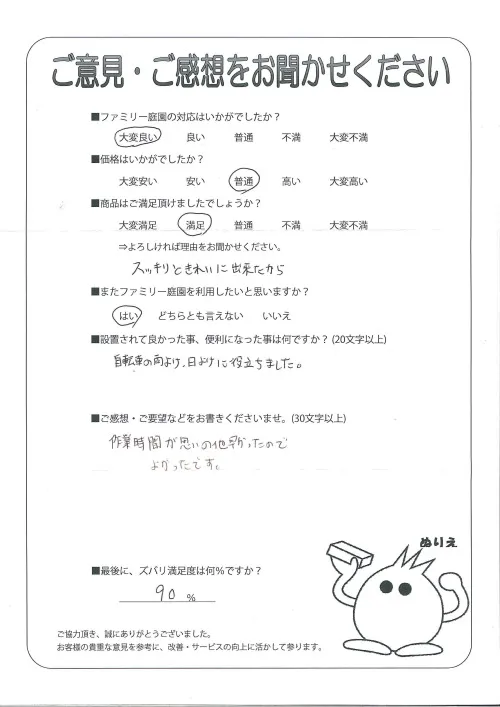 ご意見・ご感想をお聞かせください
■ファミリー庭園の対応はいかがでしたか？
大変良い 良い 普通 不満 大変不満
■価格はいかがでしたか？
大変安い 安い 普通 高い 大変高い
■商品はご満足頂けましたでしょうか？
大変満足 満足 普通 不満 大変不満
⇒よろしければ理由をお聞かせください。
スッキリときれいに出来たから
■またファミリー庭園を利用したいと思いますか？
はい どちらとも言えない いいえ
■設置されて良かった事、便利になった事は何ですか？(20文字以上)
自転車の雨よけ、日よけに役立ちました。
■ご感想・ご要望などをお書きくださいませ。(30文字以上)
作業時間が思いの他早かったので
よかったです。
ぬりえ
■最後に、ズバリ満足度は何％ですか？
90 %
ご協力頂き、誠にありがとうございました。
お客様の貴重な意見を参考に、改善・サービスの向上に活かして参ります。